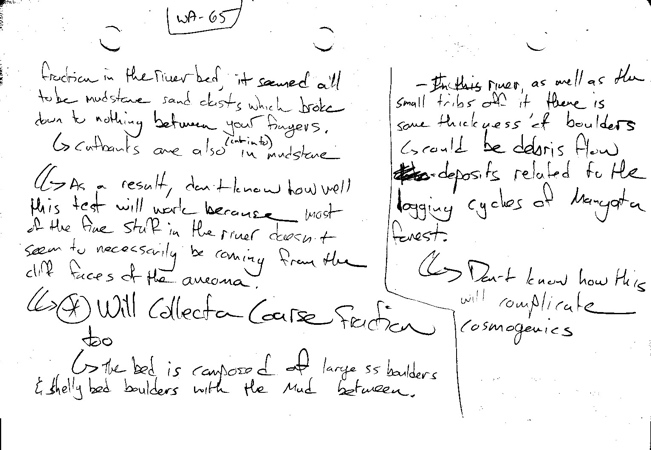 WA-65
fraction in the river bed, it seemed all
to be mudstone sand clasts which broke
down to nothing between your fingers.
↳ cutbanks are also (cut into) in mudstone
↳ As a result, don't know how well
this test will work because most
of the fine stuff in the river doesn't
seem to necessarily be coming from the
cliff faces of the
↳ * Will Collect a Coarse Fraction
too
↳ The bed is composed of large ss boulders
& shelly bed boulders with the mud between.
- In this river, as well as the
small tribs off it there is
some thickness of boulders
↳ could be debris flow
deposits related to the
logging cycles of
forest.
↳ Don't know how this
will complicate
cosmogenics